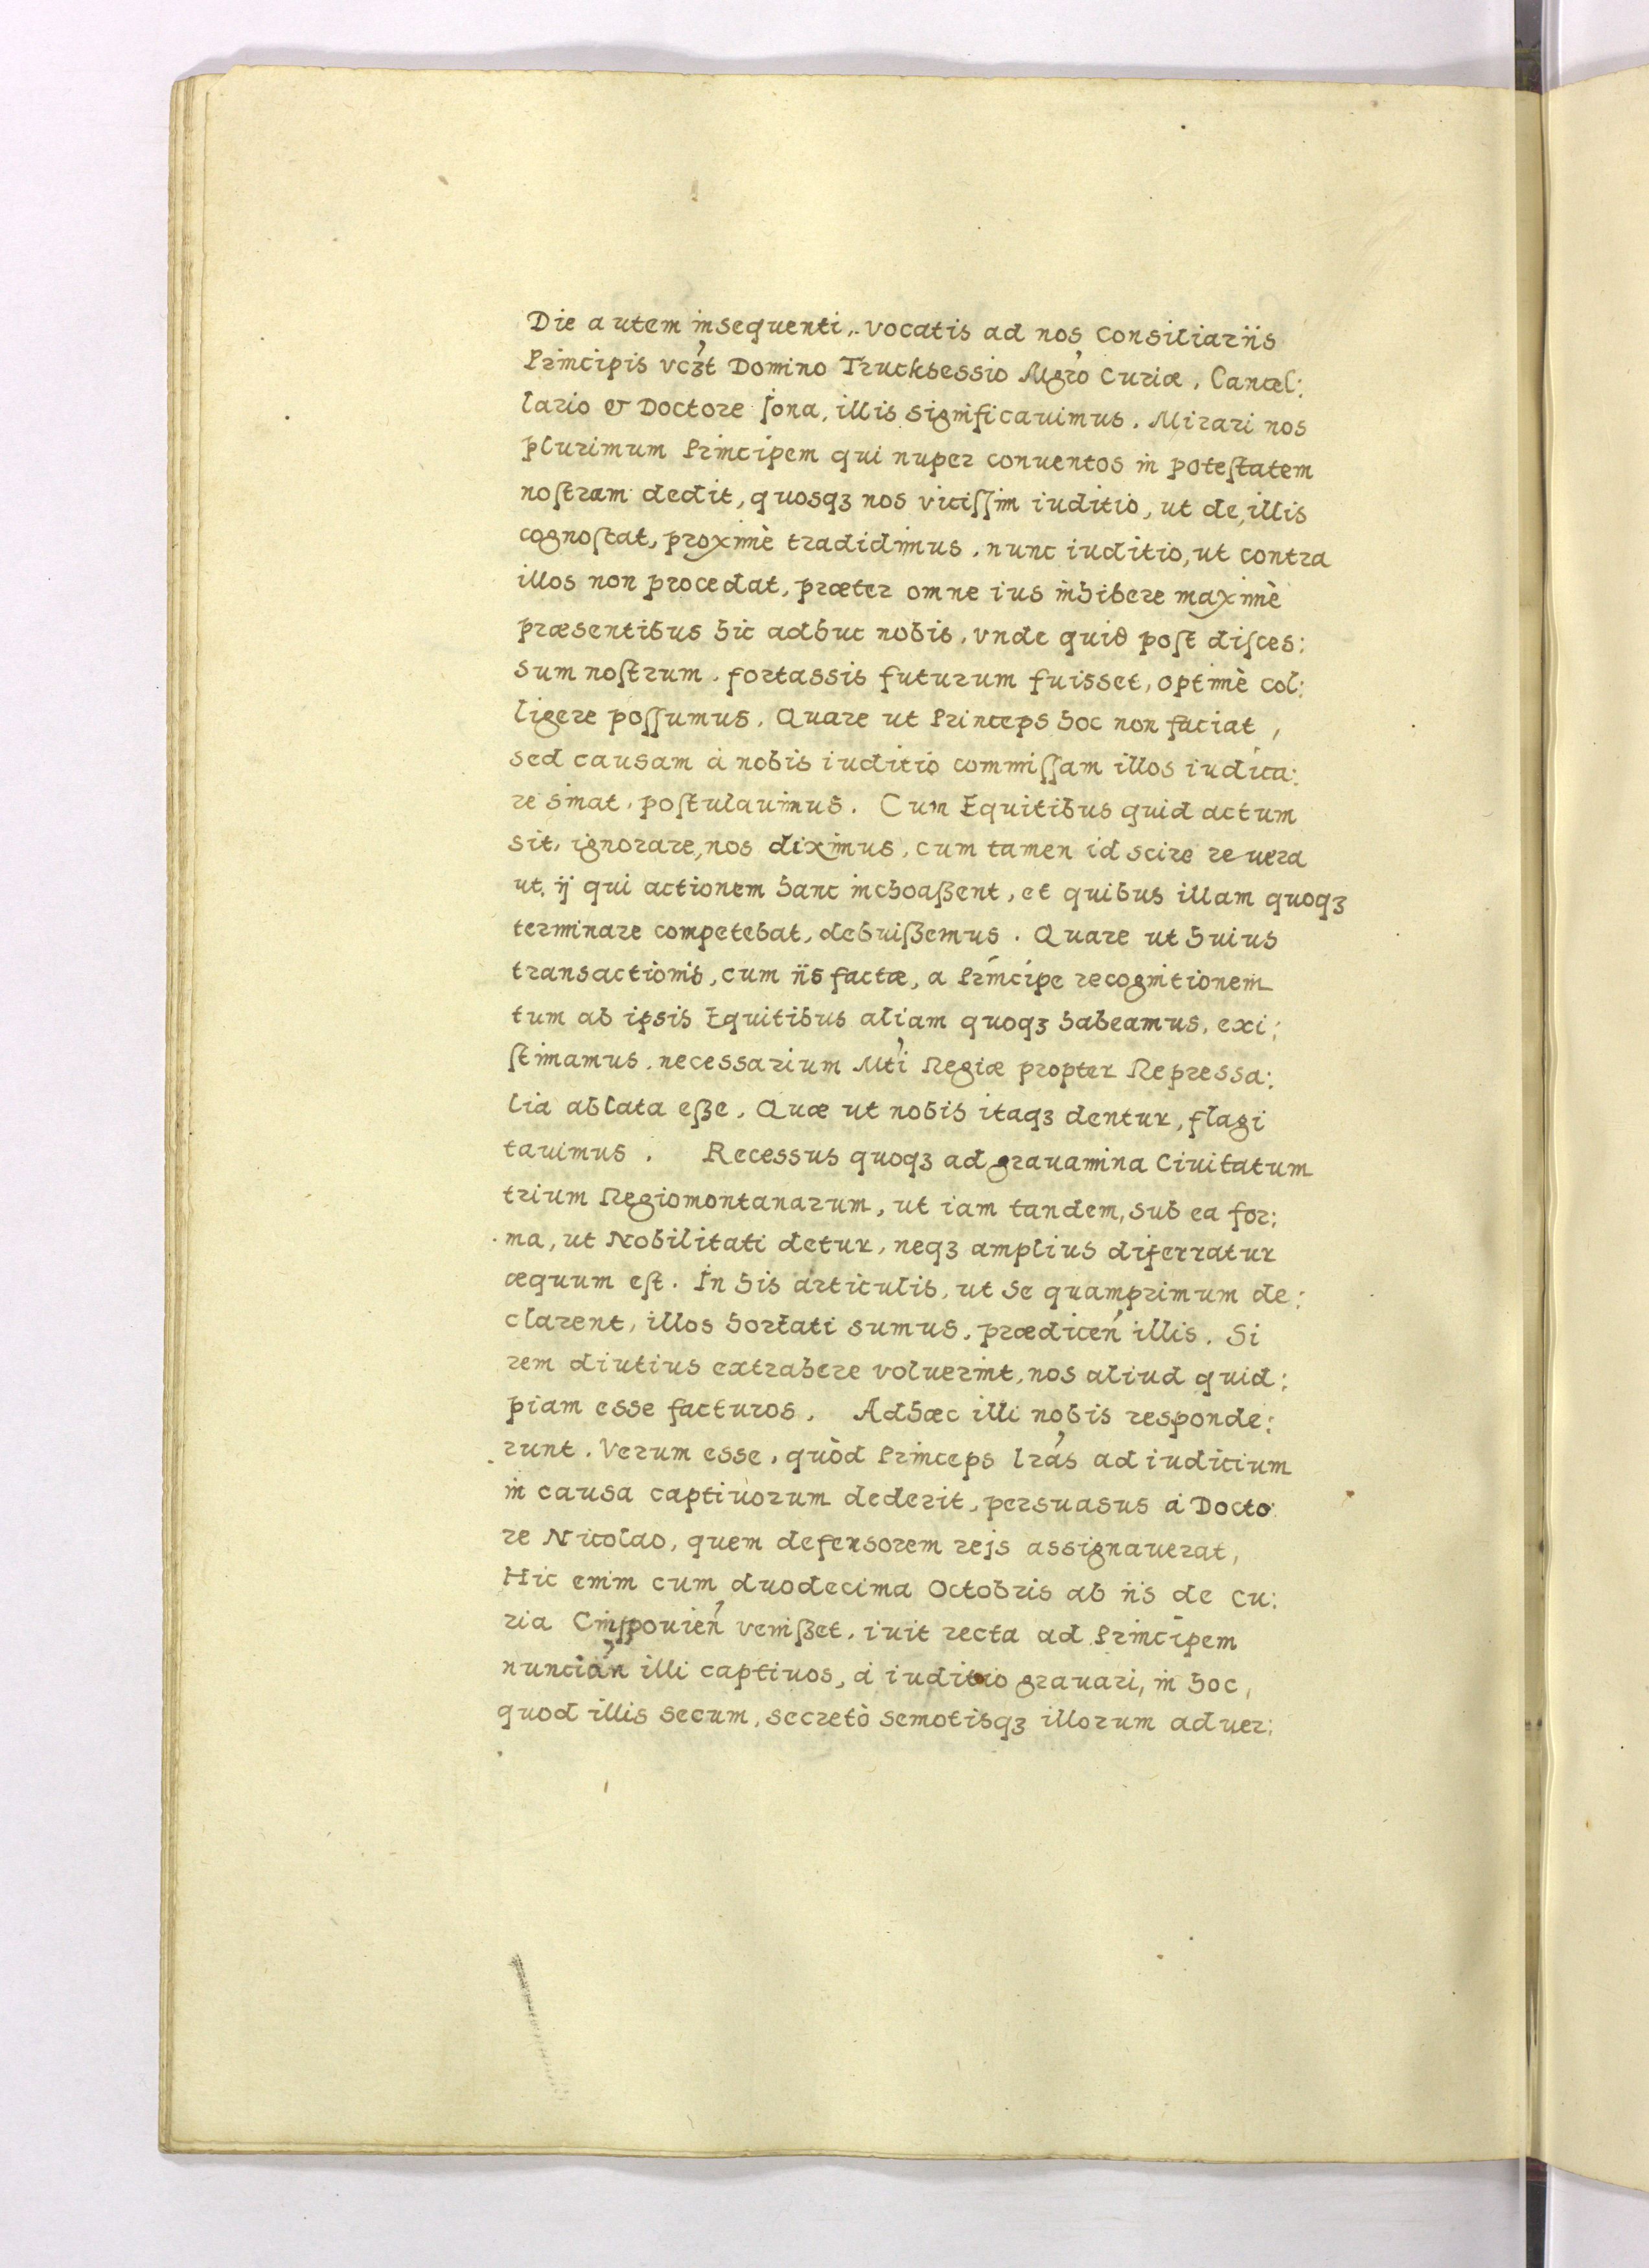 Die autem insequenti, vocatis ad nos consiliariis
Principis vcʒt Domino Trucksessio Mgro Curiæ, Cancel:
lario & Doctore Jona, illis significauimus. Mirari nos
plurimum Principem qui nuper conuentos in poteſtatem
noſtram dedit, quosqʒ nos viciſſim iuditio, ut de illis
cognoſcat, proximè tradidimus, nunc iuditio, ut contra
illos non procedat, præter omne ius inhibere maximè
præsentibus hic adhuc nobis, vnde quid poſt diſces:
sum noſtrum, fortassis futurum fuisset, optimè col:
ligere poſſumus. Quare ut Princeps hoc non faciat,
sed causam à nobis iuditio commiſſam illos iudica:
re sinat, poſtulauimus. Cum Equitibus quid actum
sit, ignorare, nos diximus, cum tamen id scire re uera
ut ij qui actionem hanc inchoaßent, et quibus illam quoqʒ
terminare competebat, debuißemus. Quare ut huius
transactionis, cum iis factæ, a Principe recognitionem
tum ab ipsis Equitibus aliam quoqʒ habeamus, exi:
ſtimamus, necessarium Mti Regiæ propter Repressa:
lia ablata eße. Quæ ut nobis itaqʒ dentur, flagi
tauimus. Recessus quoqʒ ad grauamina Ciuitatum
trium Regiomontanarum, ut iam tandem, sub ea for:
ma, ut Nobilitati detur, neqʒ amplius diferratur
æquum eſt. In his articulis, ut se quamprimum de:
clarent, illos hortati sumus, prædicen illis. Si
rem diutius extrahere voluerint, nos aliud quid:
piam esse facturos. Adhæc illi nobis responde:
runt. Verum esse, quòd Princeps lras ad iudicium
in causa captiuorum dederit, persuasus à Docto:
re Nicolao, quem defensorem rejs assignauerat,
Hic enim cum duodecima Octobris ab iis de Cu:
ria Cniſpouien venißet, iuit recta ad Principem
nuncian illi captiuos, à iuditio grauari, in hoc,
quod illis secum, secretò semotisqʒ illorum aduer: